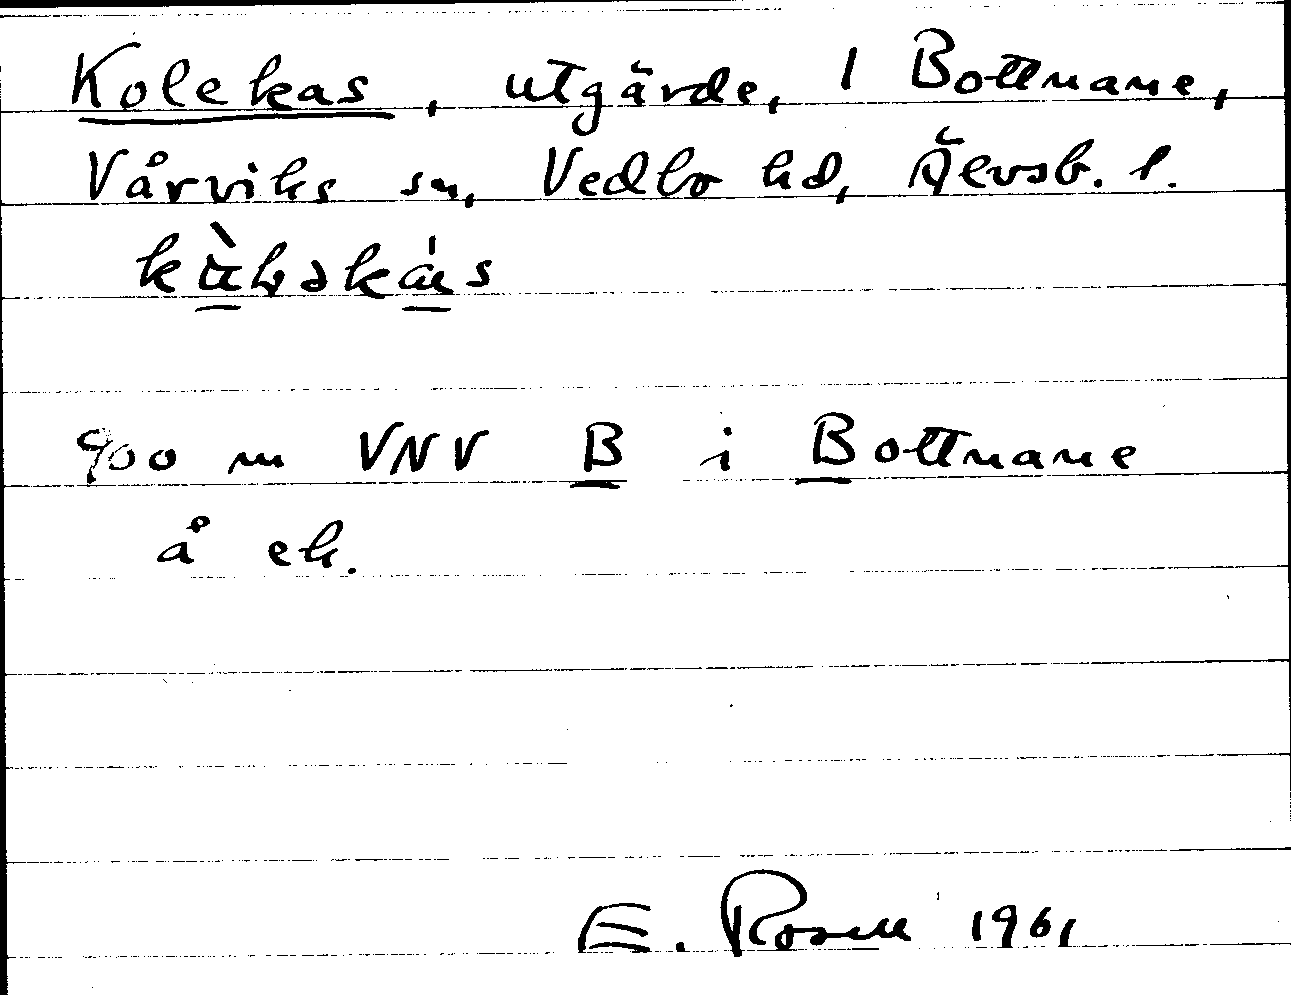 Kolekas, utgärde, 1 Bottnane,
Vårviks sn, Vedbo hd, Älvsb. l.
900 m VNV B i Bottnane
å ek.
E. Rosell 1961